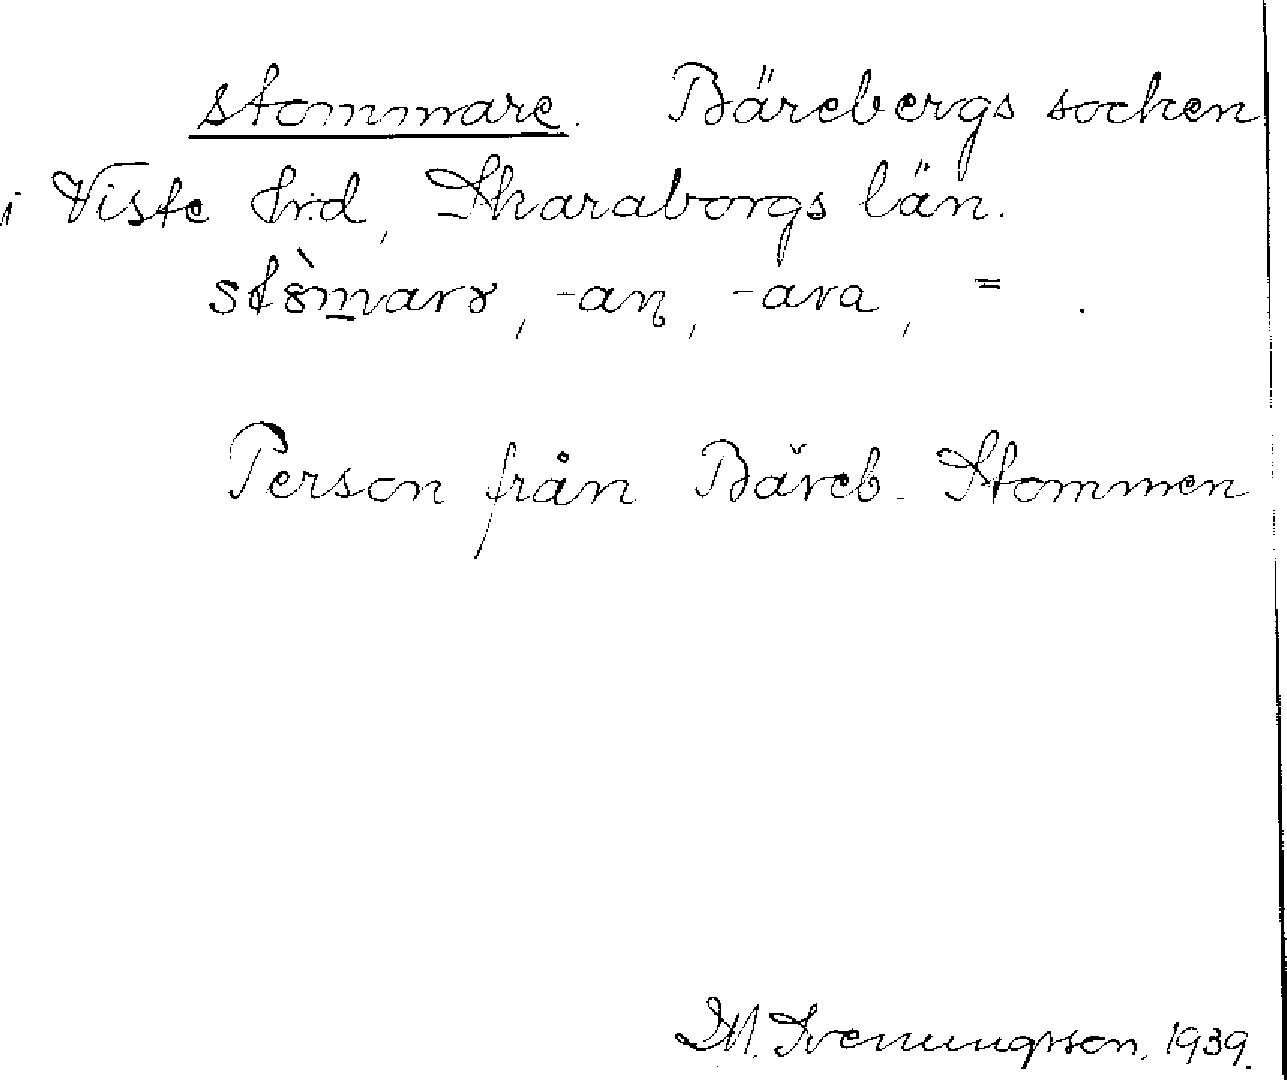 stommare. Bärebergs socken
i Viste hrd, Skaraborgs län.
-an, -ara, = .
Person från Bäreb. Stommen
M. Svenungsson. 1939.